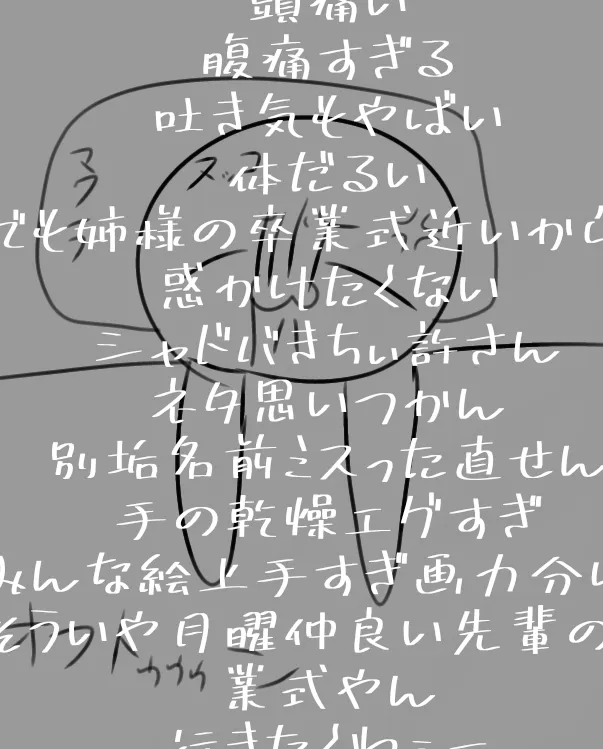 頭痛い
腹痛すぎる
吐き気もやばい
体だるい
でも姉様の卒業式近いから
惑かけたくない
シャドバきちぃ許さん
ネタ思いつかん
別垢名前ミスった直せん
手の乾燥エグすぎ
みんな絵上手すぎ画力分
そういや月曜仲良い先輩の
業式やん
行きたくねー